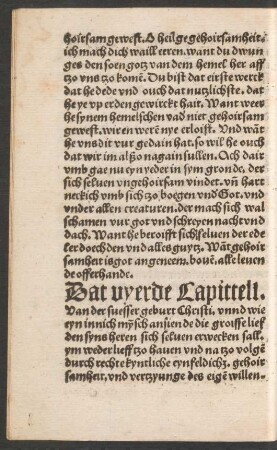 hoirsam gewest. O heilge gehoirsamheit
ich mach dich waill eeren. want du dwun
ges den soen gotz van dem hemel her aff
tzo vns zo komē. Du bist dat eirste werck
dat he dede vnd ouch dat nutzlichste. dat
he ye vp erden gewirckt hait. Want weer
he synem hemelschen vad̕ niet gehoirsam
gewest. wir en werē nye erloist. Vnd wāt
he vns dit vur gedain hat. so wil he ouch
dat wir im alßo nagain sullen. Och dair
vmb gae nu eyn yeder in sym gronde. der
sich seluen vngehoirsum vindet. vn̄ hart
neckich vmb sich tzo boegen vnd Got. vnd
vnder allen creaturen. der mach sich wal
schamen vur got vnd schreyen nacht vnd
dach. Want he beroifft sich seluen der ede
ler doechden vnd alles guytz. Wāt gehoir
samheit is got angeneem. bouē. alle leuen
de offerhande.
Dat vyerde Capittell.
Van der suesser geburt Christi. vnnd wie
eyn innich mỹsch ansien de die groisse lieff
den syns heren sich seluen erwecken sall.
ym weder lieff tzo hauen vnd na tzo volgē
durch rechte kyntliche eynfeldichz. gehoir
samheit. vnd vertzyunge des eigē willen.